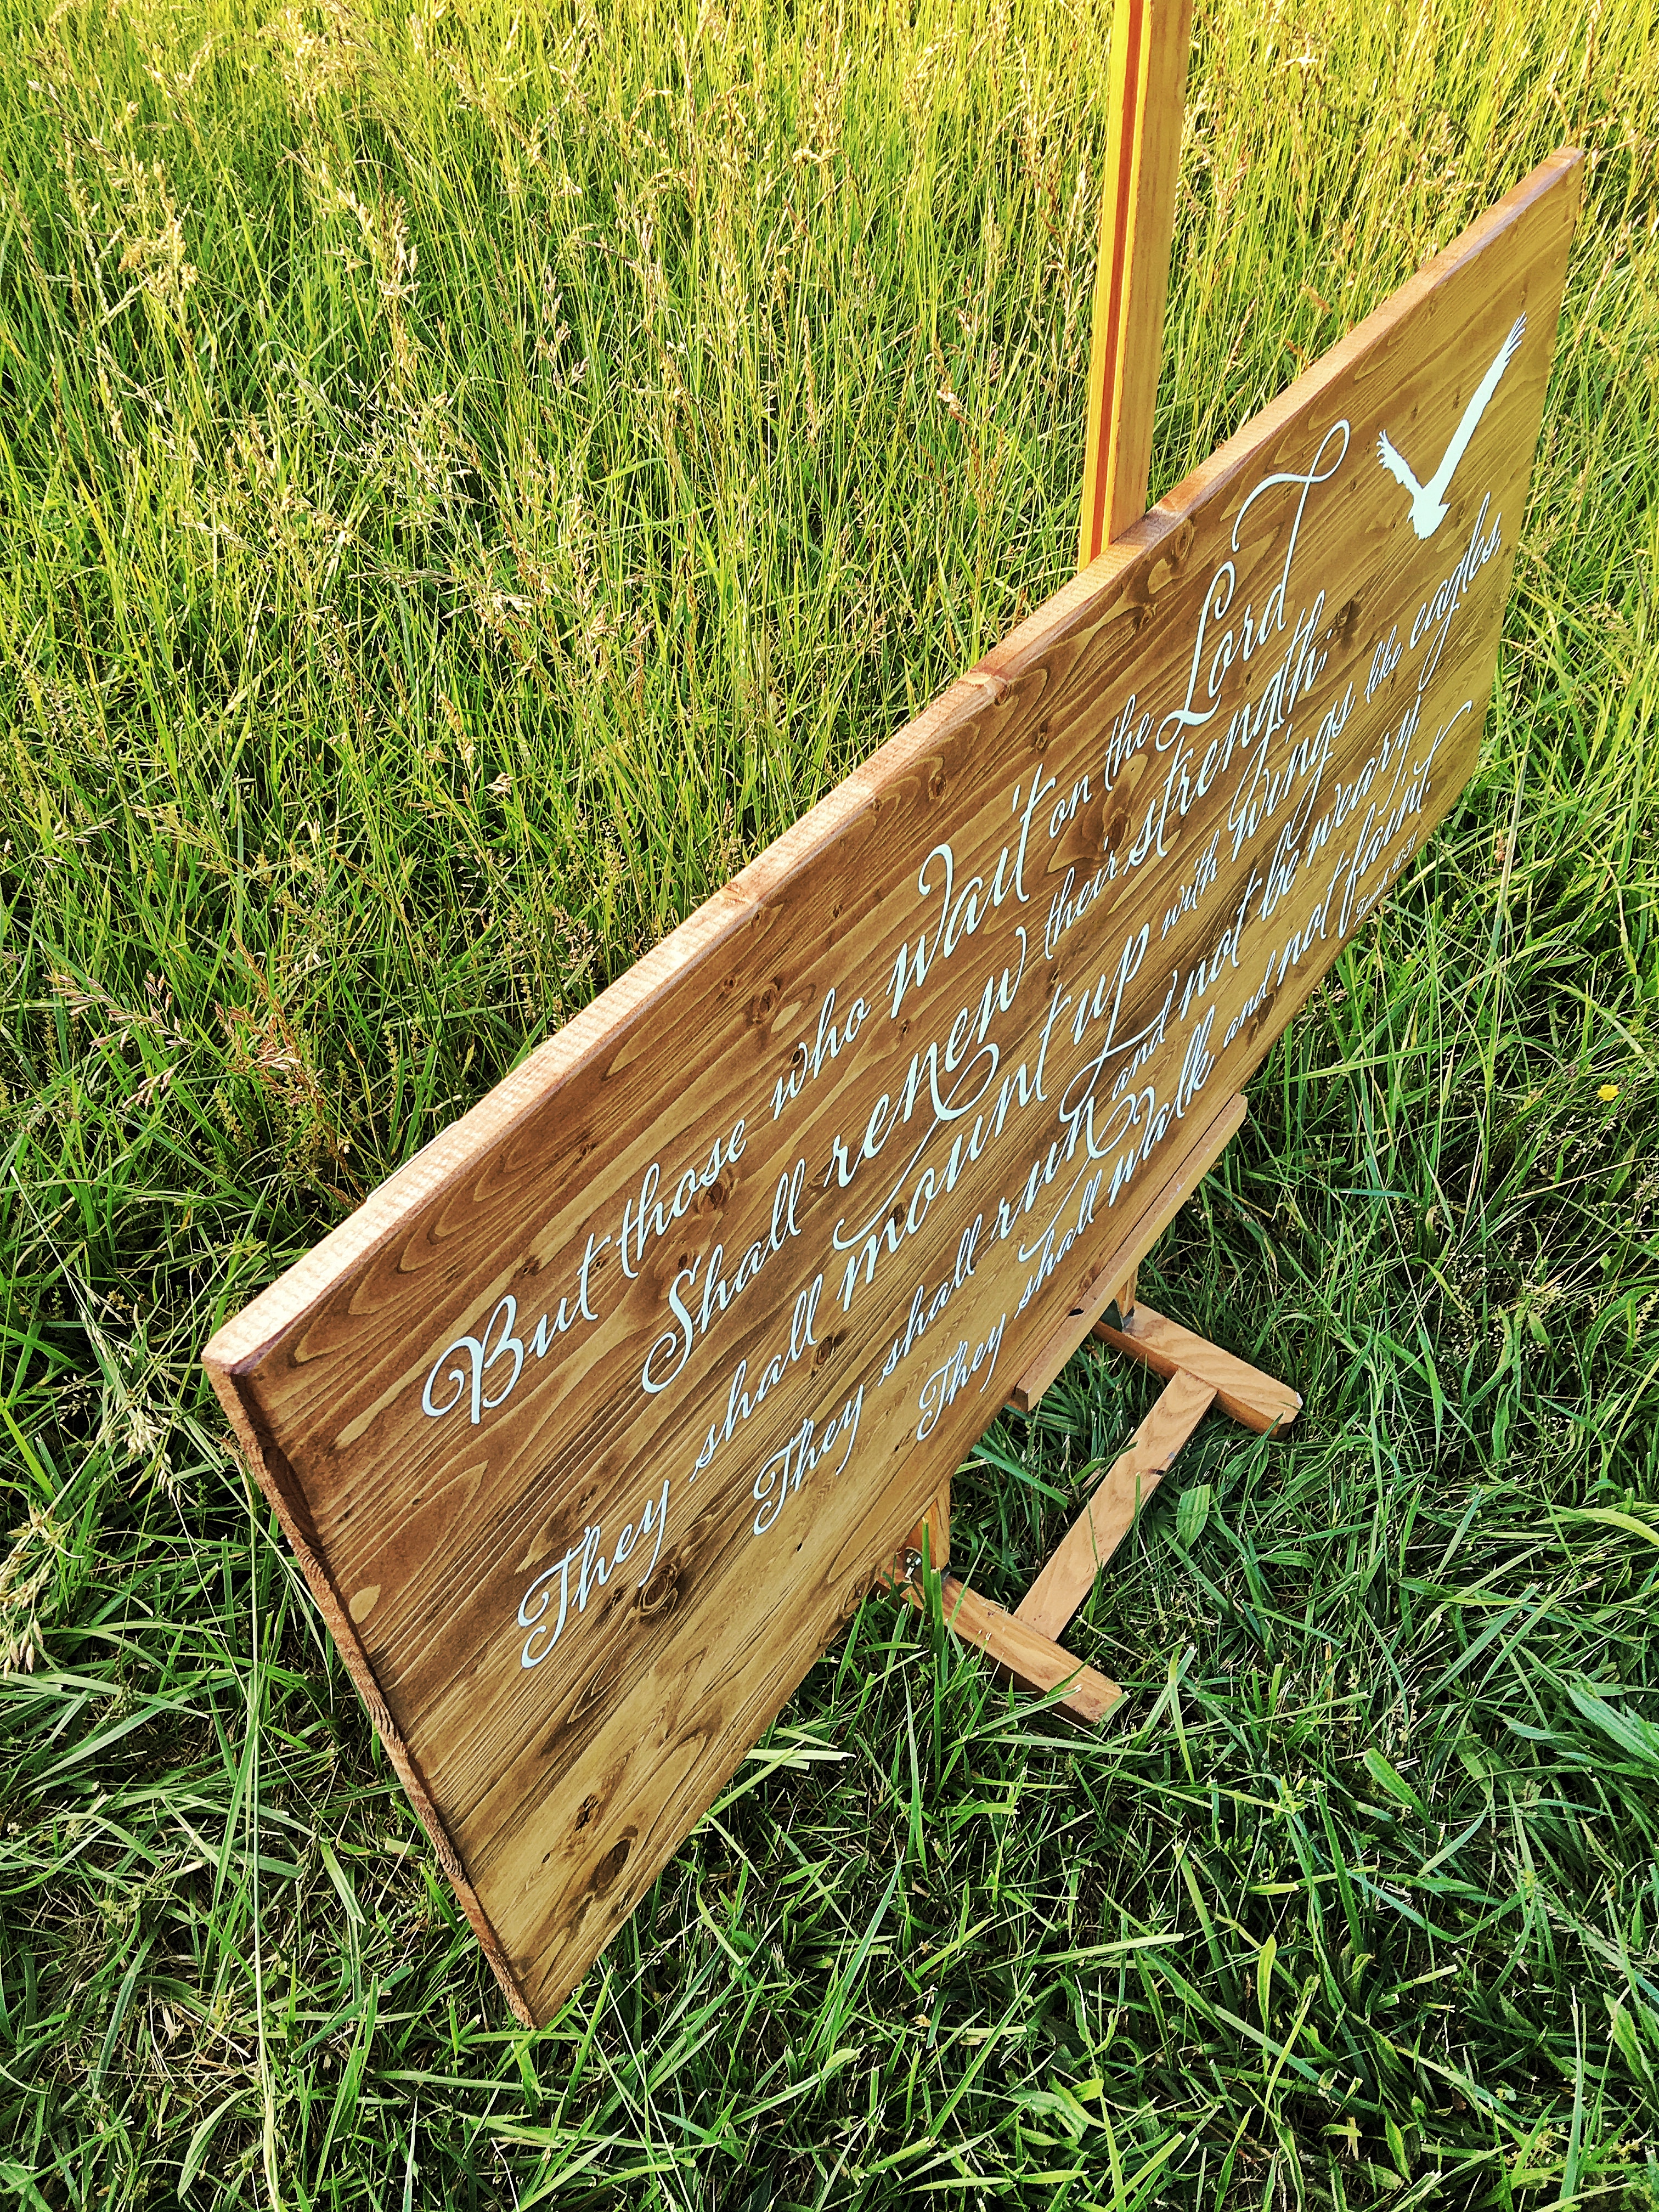 But those who Wait on the Lord
Shall renew their strength;
They shall mount up with Wings like eagles,
They shall run and not be weary
They shall Walk and not faint.
Isaiah 40:31